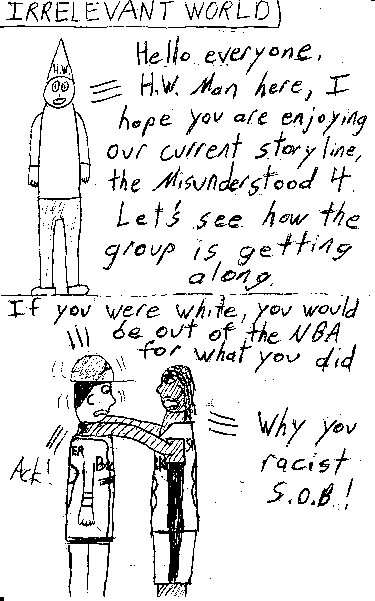 IRRELEVANT WORLD
H.W.
Hello everyone,
H.W. Man here, I
hope you are enjoying
our current storyline,
the Misunderstood 4.
Let's see how the
group is getting
along.
If you were white, you would
be out of the NBA
for what you did
Why you
racist
S.O.B.!
Ack!
ER